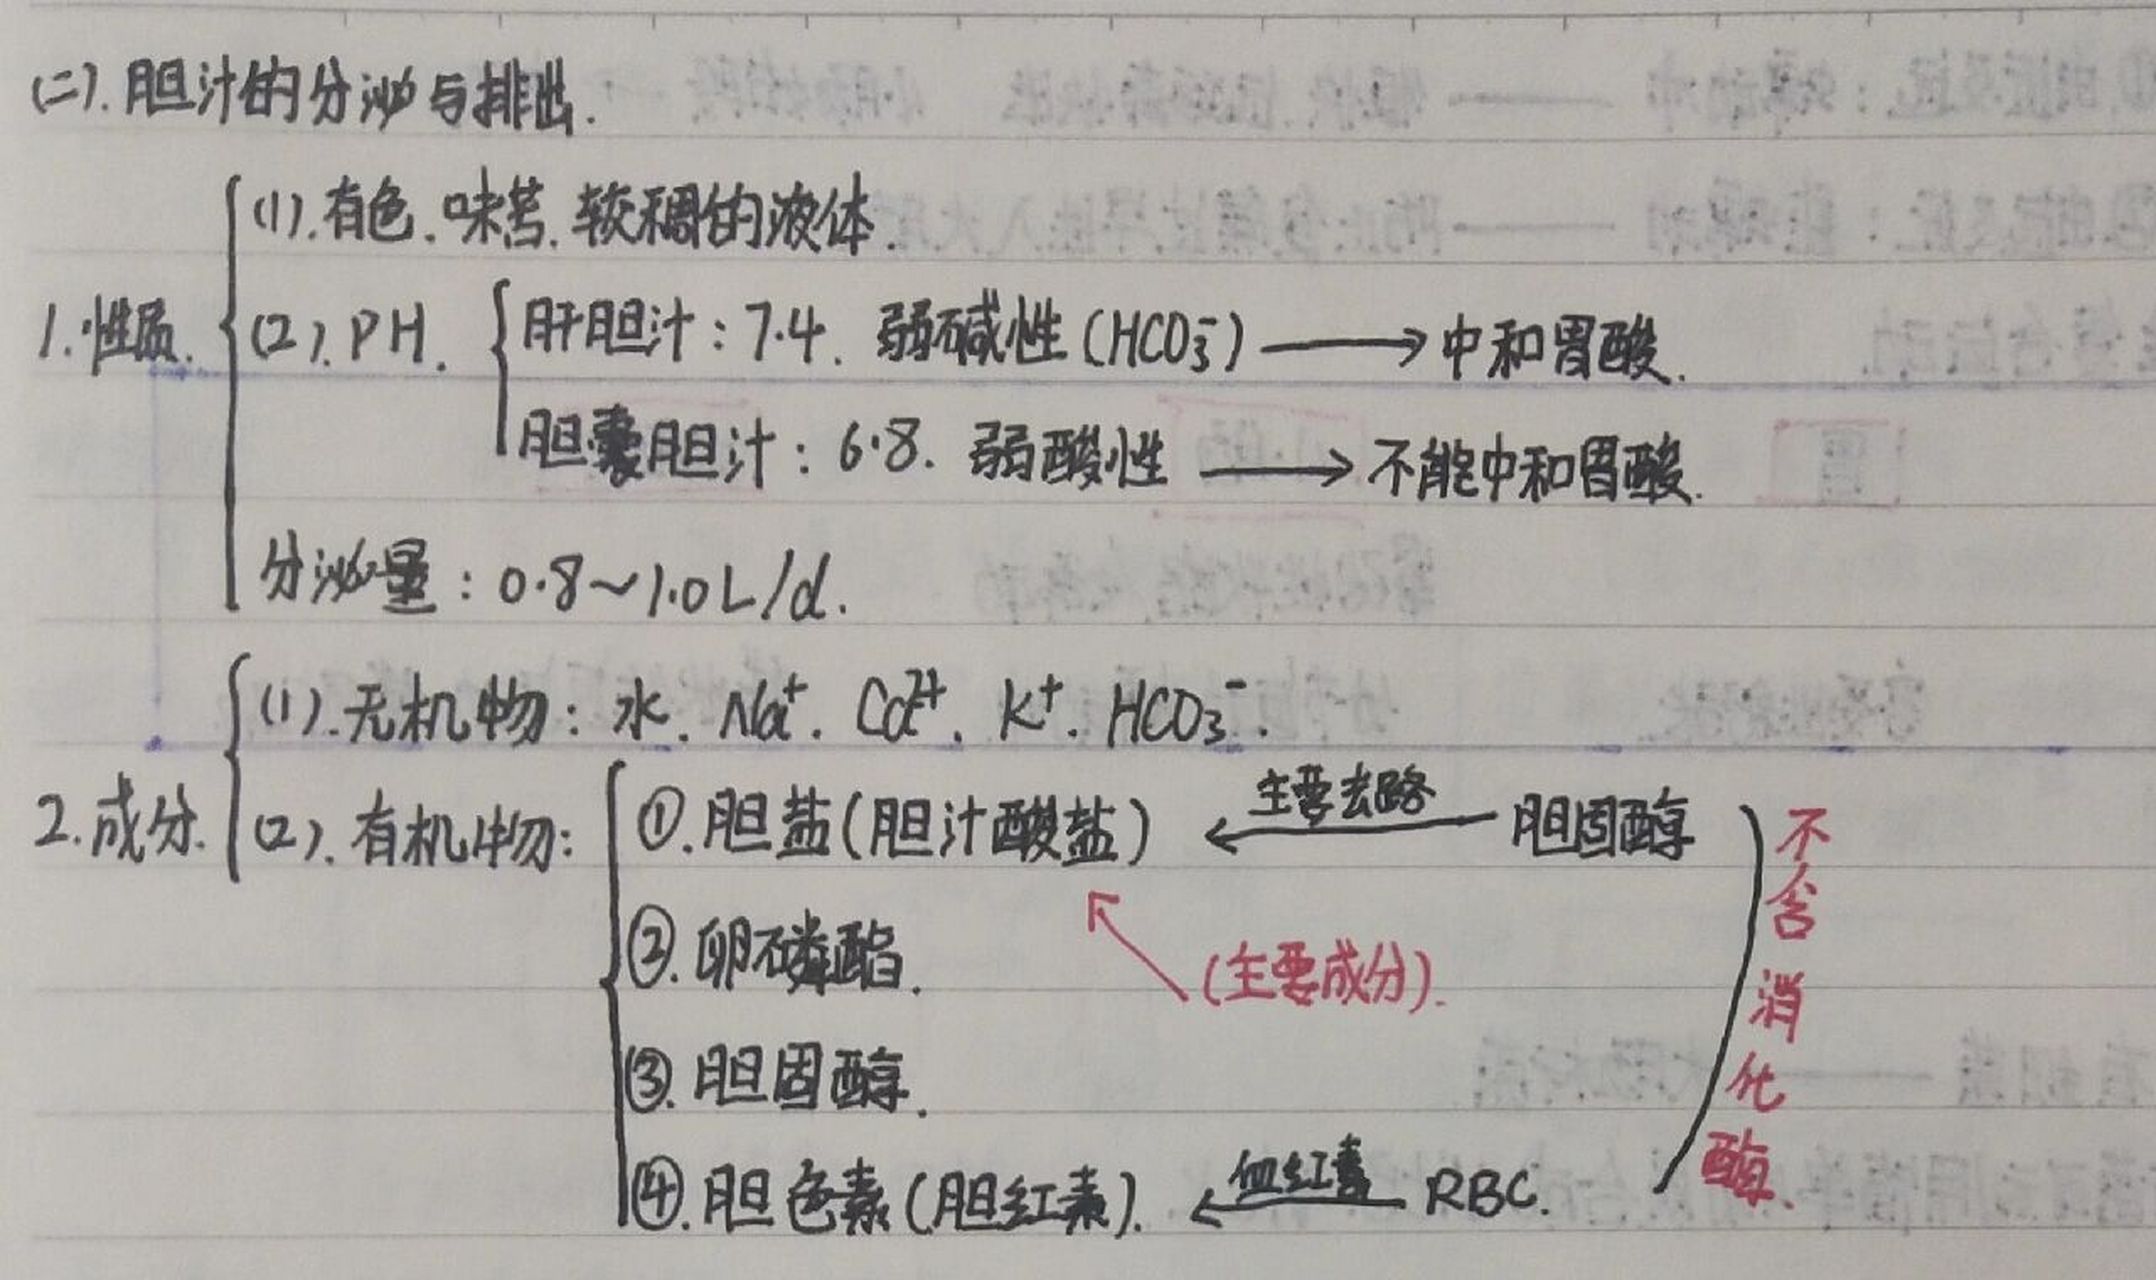 (二).胆汁的分泌与排出.
(1).有色.味苦.较稠的液体.
1.性质.
(2).PH.
肝胆汁:7.4.弱碱性(HCO₃⁻)⟶中和胃酸.
胆囊胆汁:6.8.弱酸性⟶不能中和胃酸.
分泌量:0.8~1.0L/d.
(1).无机物:水.Na⁺.Ca²⁺.K⁺.HCO₃⁻.
2.成分.
(2).有机物:
①.胆盐(胆汁酸盐)⟵主要去路 胆固醇
②.卵磷酯.
(主要成分).
③.胆固醇.
④.胆色素(胆红素).⟵血红素 RBC.
不含消化酶.